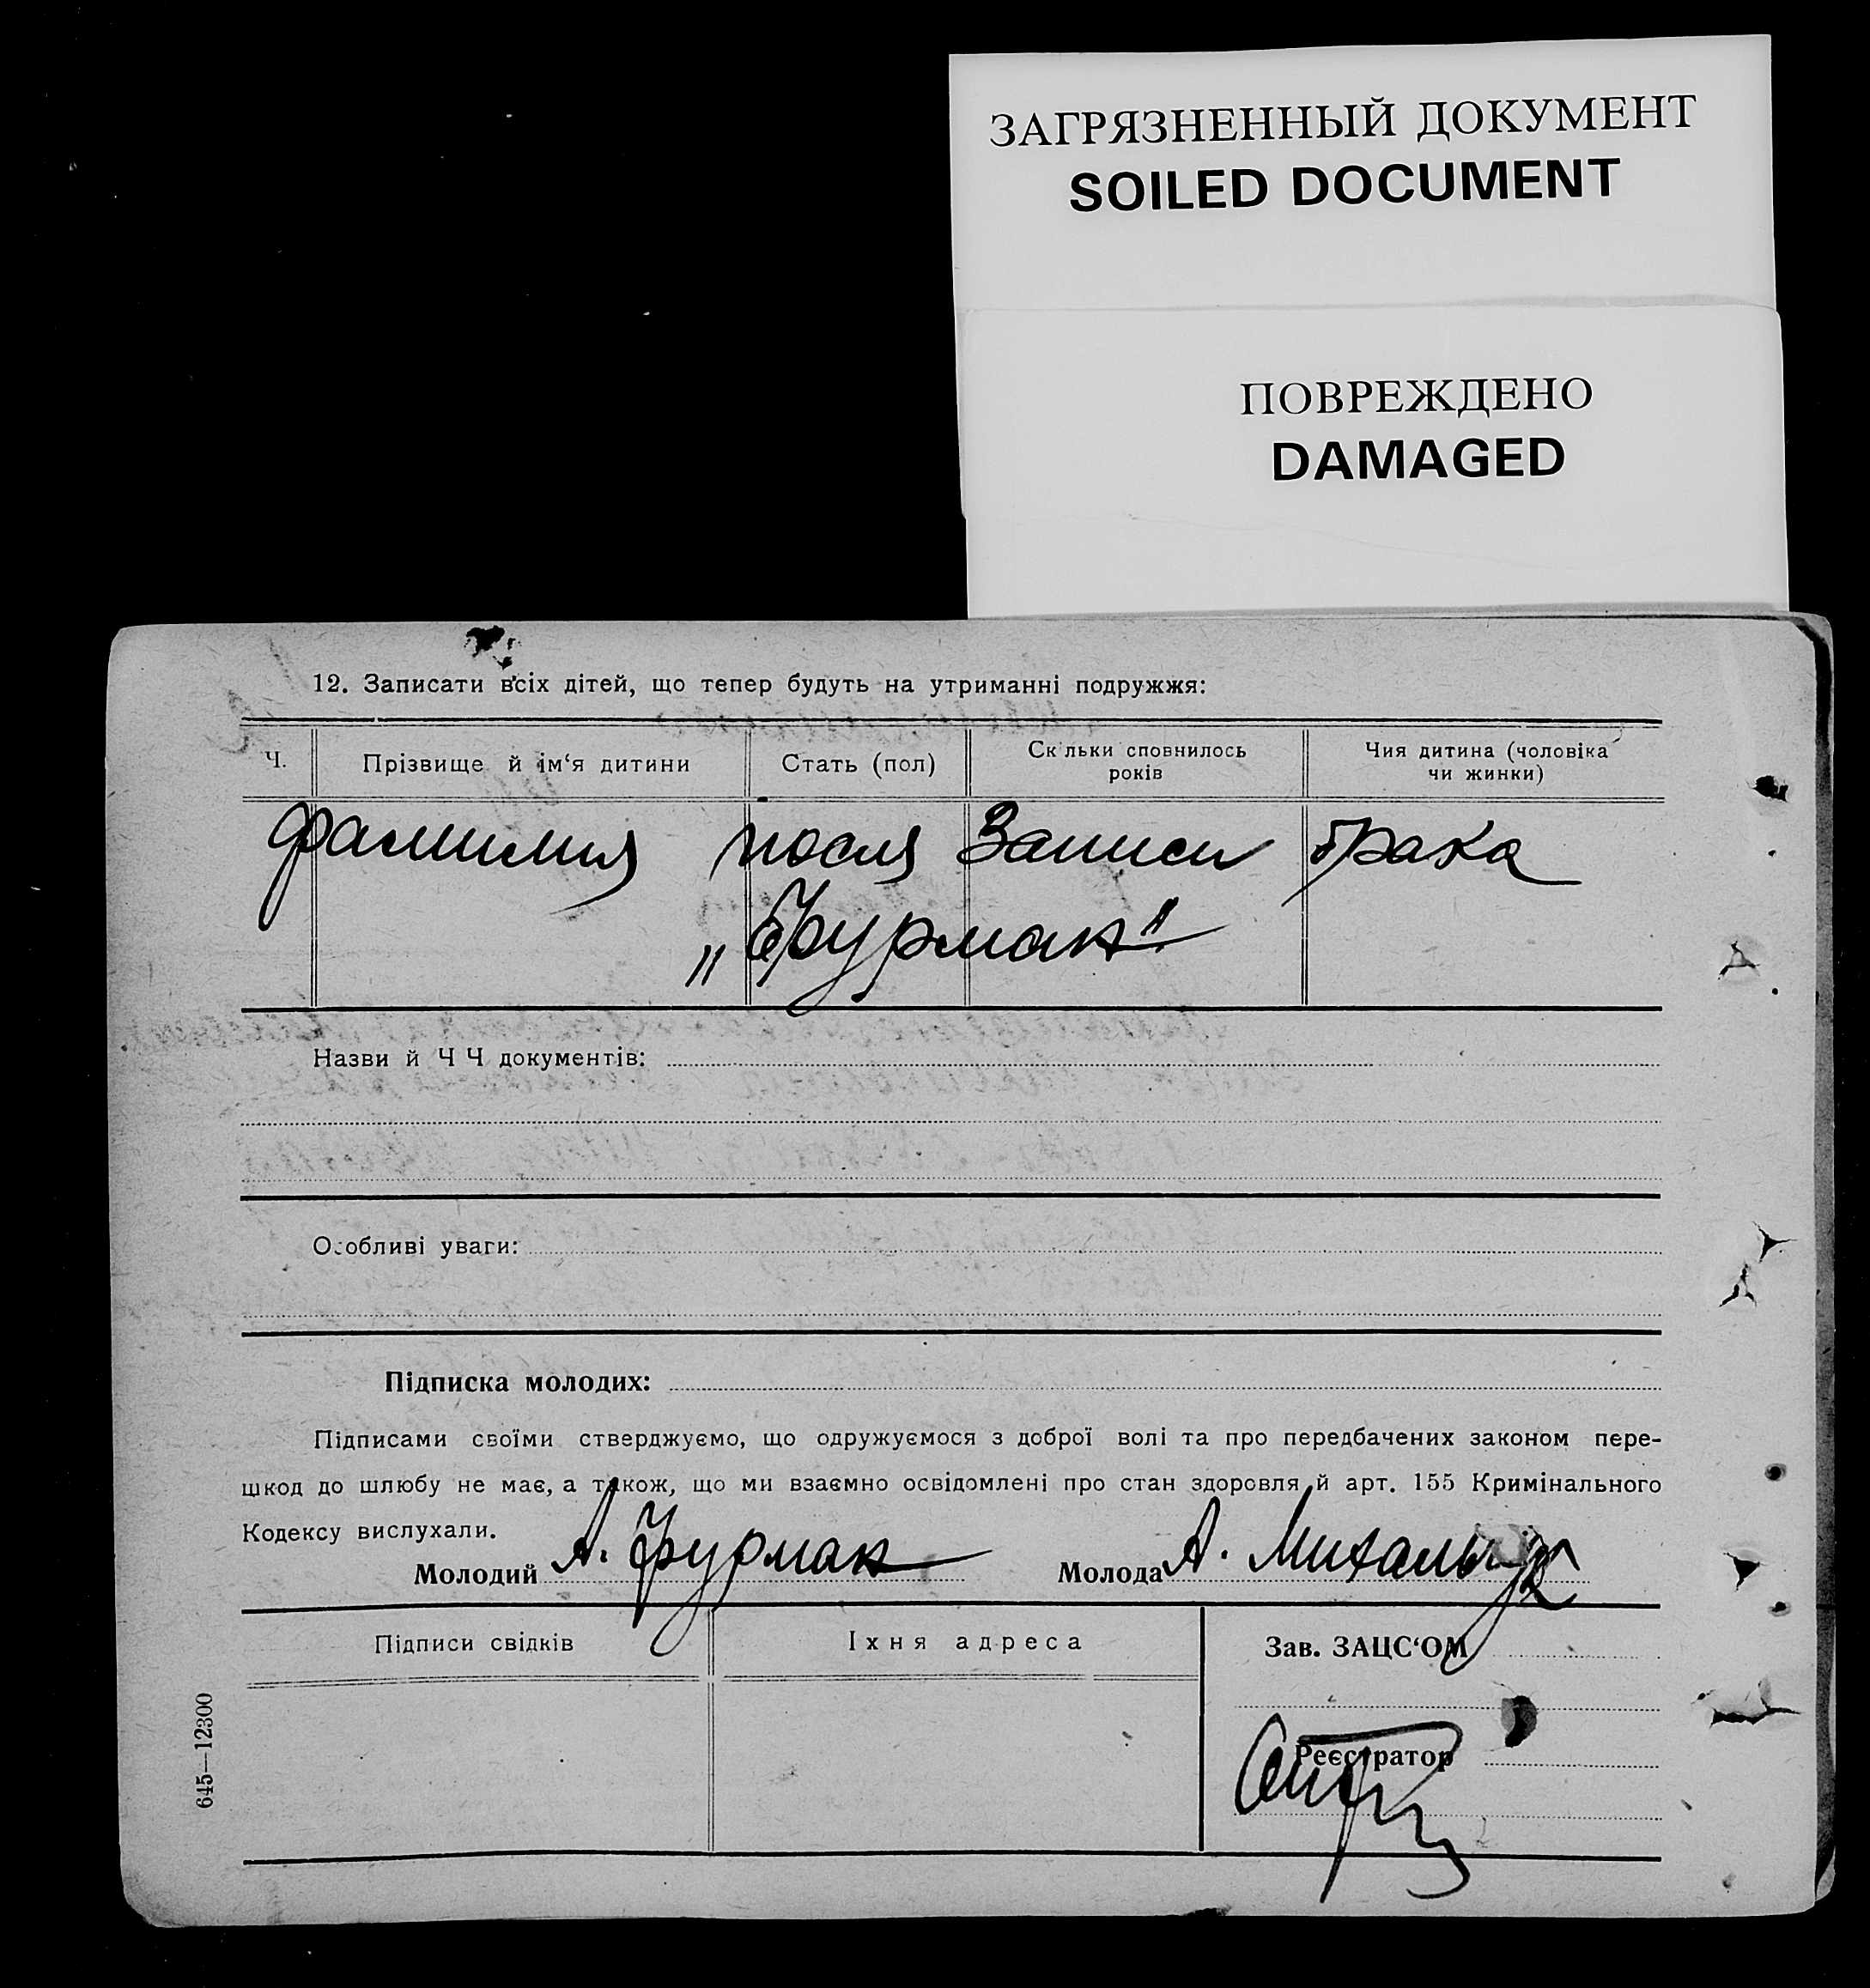 ЗАГРЯЗНЕННЫЙ ДОКУМЕНТ
SOILED DOCUMENT
ПОВРЕЖДЕНО
DAMAGED
12. Записати всіх дітей, що тепер будуть на утриманні подружжя:
Ч. Прізвище й ім‘я дитини Стать (пол) Скільки сповнилось років Чия дитина (чоловіка чи жинки)
фамилия после записи брака
„Фурман"
Назви й Ч Ч документів:
Особливі уваги:
Підписка молодих:
Підписами своїми стверджуємо, що одружуємося з доброї волі та про передбачених законом пере-
шкод до шлюбу не має, а також, що ми взаємно освідомлені про стан здоровля й арт. 155 Кримінального
Кодексу вислухали.
Молодий А. Фурман Молода А. Михальчук
Підписи свідків Їхня адреса Зав. ЗАЦС‘ОМ
Реєстратор
645—12300